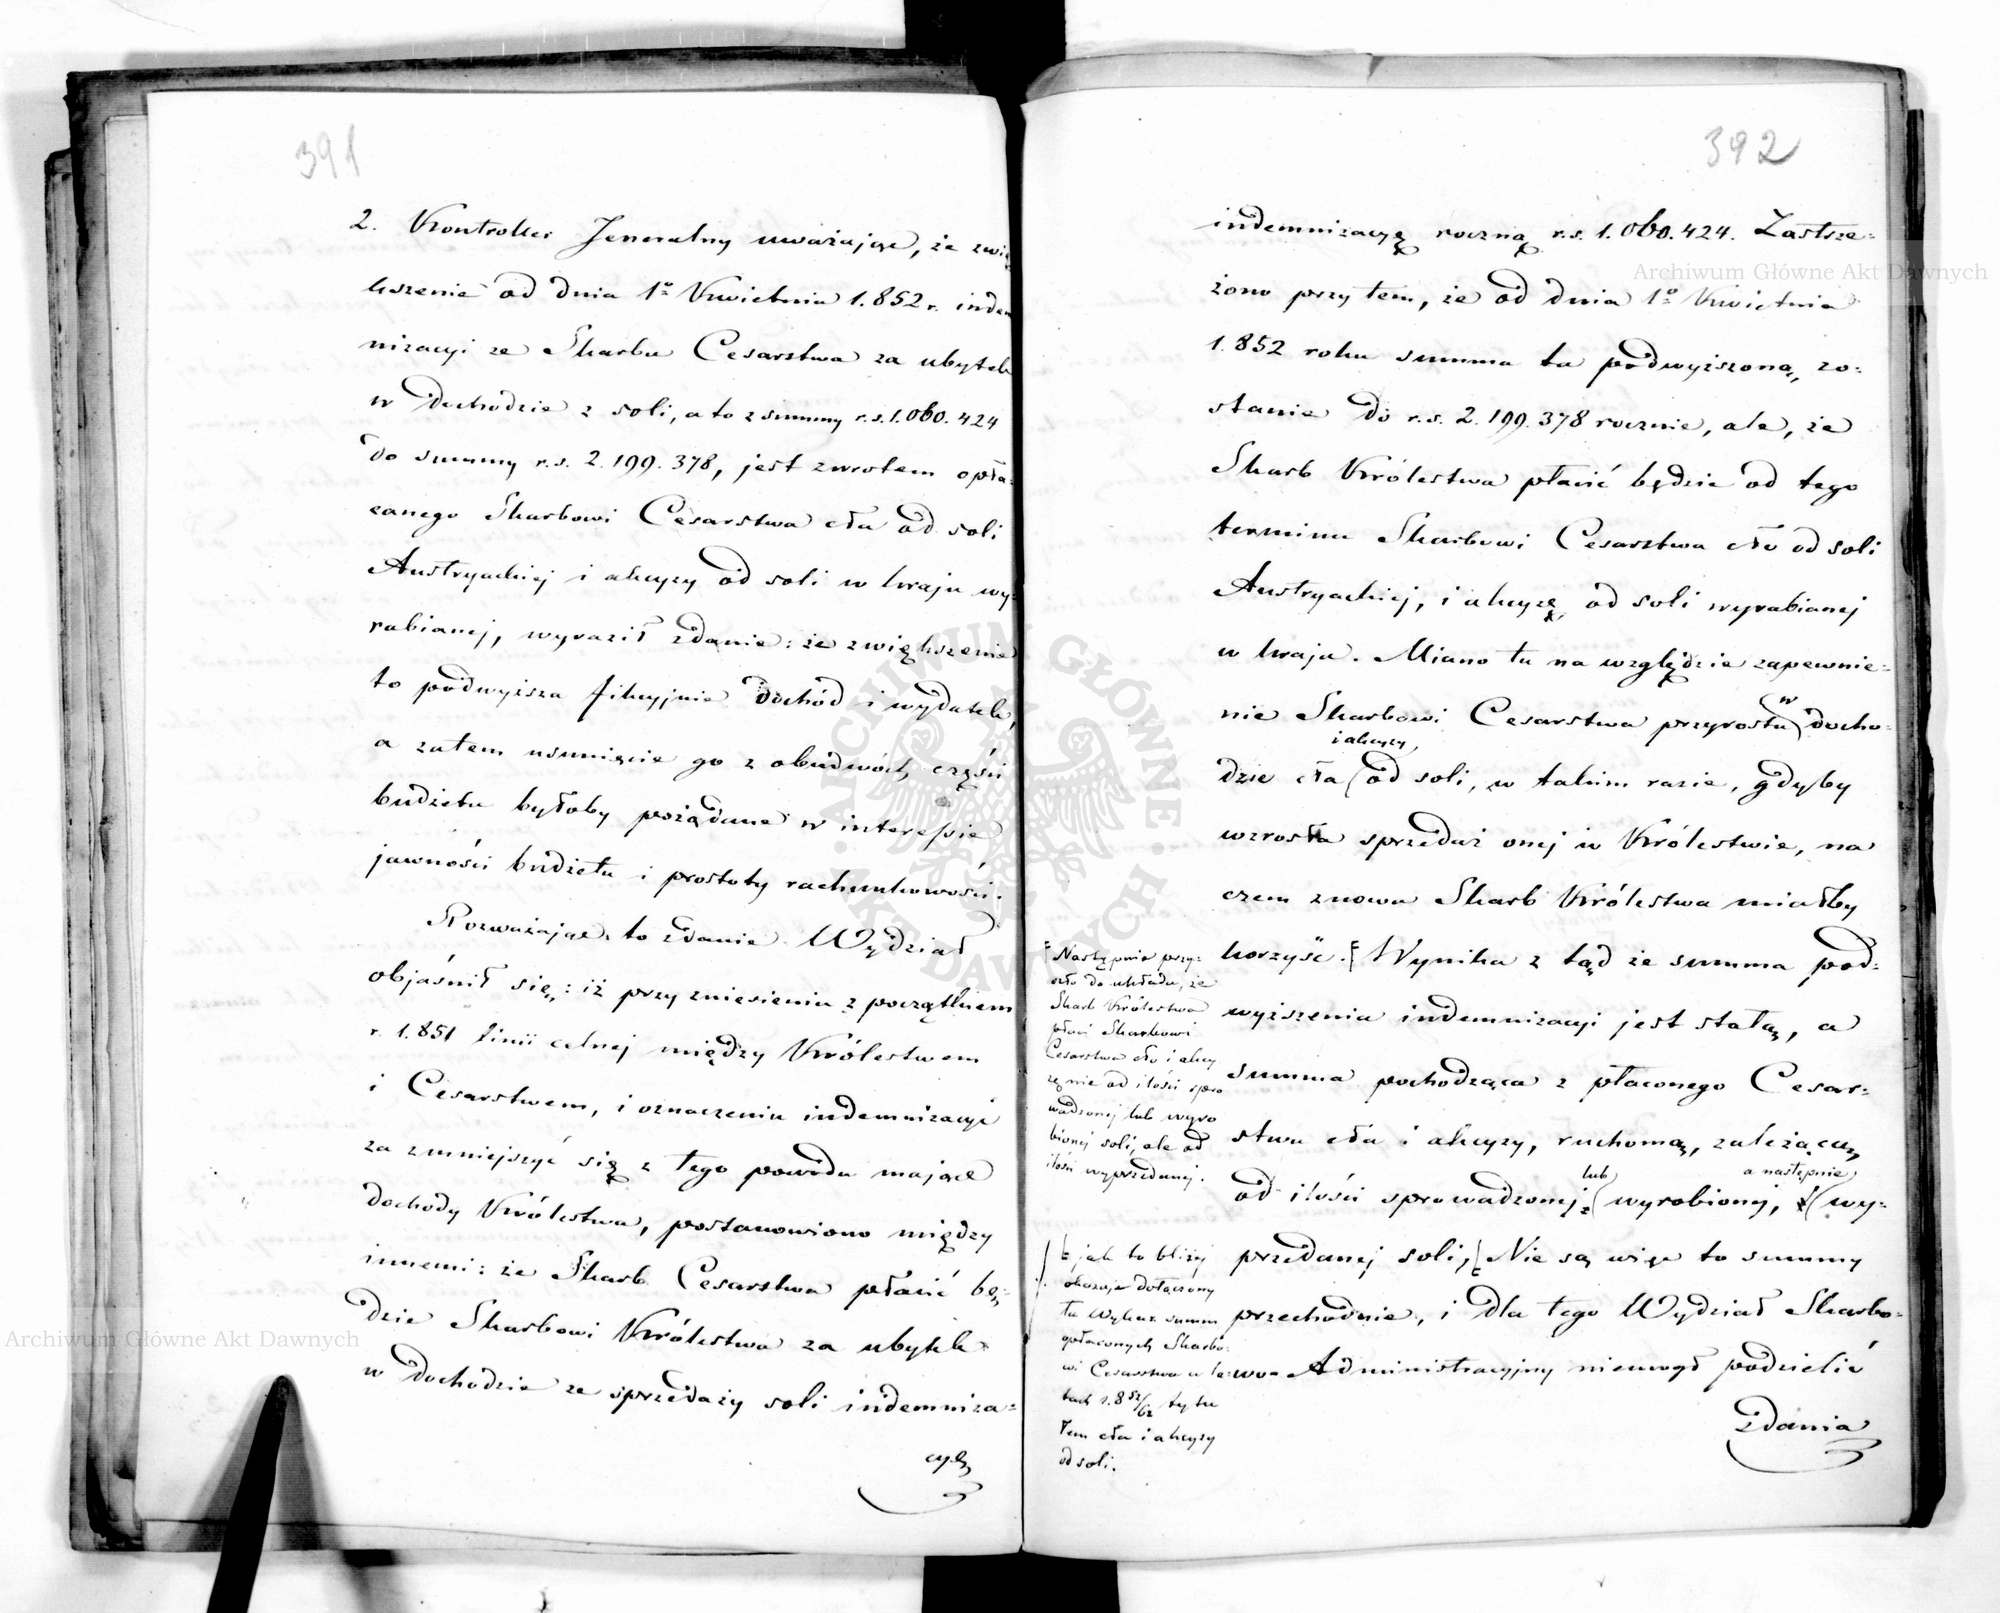 391
2. Kontroller Jeneralny uważając, że zwię
kszenie od dnia 1º Kwietnia 1.852 r. indem
nizacyi ze Skarbu Cesarstwa za ubytek
w dochodzie z soli, a to z summy r.s. 1.060.424
do summy r.s. 2.199.378, jest zwrotem opła-
canego Skarbowi Cesarstwa cła od soli
Austryackiej i akcyzy od soli w kraju wy-
rabianej, wyraził zdanie: że zwiększenie
to podwyższa fikcyjnie dochód i wydatek,
a zatem usunięcie go z obudwóch części
budżetu byłoby pożądane w interessie
jawności budżetu i prostoty rachunkowości.
Rozważając to zdanie Wydział
objaśnił się: iż przy zniesieniu z początkiem
r. 1.851 linii celnej między Królestwem
i Cesarstwem, i oznaczeniu indemnizacyi
za zmniejszyć się z tego powodu mające
dochody Królestwa, postanowiono między
innemi: że Skarb Cesarstwa płacić bę-
dzie Skarbowi Królestwa za ubytek
w dochodzie ze sprzedaży soli indemniza-
cyę
392
indemnizacyą roczną r.s. 1.060.424. Zastrze-
żono przy tem, że od dnia 1º Kwietnia
1.852 roku summa ta podwyższoną zo-
stanie do r.s. 2.199.378 rocznie, ale, że
Skarb Królestwa płacić będzie od tego
terminu Skarbowi Cesarstwa cło od soli
Austryackiej, i akcyzę od soli wyrabianej
w kraju. Miano tu na względzie zapewnie-
nie Skarbowi Cesarstwa przyrostu w docho-
dzie cła i akcyzy od soli, w takim razie, gdyby
wzrosła sprzedaż onej w Królestwie, na
czem znowu Skarb Królestwa miałby
korzyść. Wynika z tąd że summa pod-
wyższenia indemnizacyi jest stałą, a
summa pochodząca z płaconego Cesar-
stwu cła i akcyzy, ruchomą, zależącą
od ilości sprowadzonej lub wyrobionej, a następnie wy-
przedanej soli, Nie są więc to summy
przechodnie, i dla tego Wydział Skarbo-
wo-Administracyjny niemógł podzielić
zdania
Następnie przy-
szło do układu, że
Skarb Królestwa
płaci Skarbowi
Cesarstwa cło i akcy
zę nie od ilości spro
wadzonej lub wyro
bionej soli, ale od
ilości wyprzedanej.
jak to bliżej
okazuje dołączony
tu Wykaz summ
opłaconych Skarbo-
wi Cesarstwa w la-
tach 1.852/62 tytu
łem cła i akcyzy
od soli.
Archiwum Główne Akt Dawnych
Archiwum Główne Akt Dawnych
ARCHIWUM GŁÓWNE AKT DAWNYCH